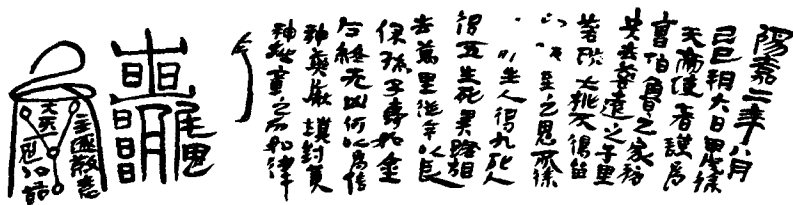 陽嘉二年八月
己巳朔六日甲戌徐
天帝使者謹為
曹伯魯之家移
央去咎遠之千里
咎 大桃不得留
至之鬼所徐
生人得九死人
得五生死異路相
去萬里從今以長
保孫子壽如金
石終無凶何以為信
神藥厭填封黃
神越章之印如律
令
日日
日日日月
尾鬼
主逐敦惡
大天一
鬼以節